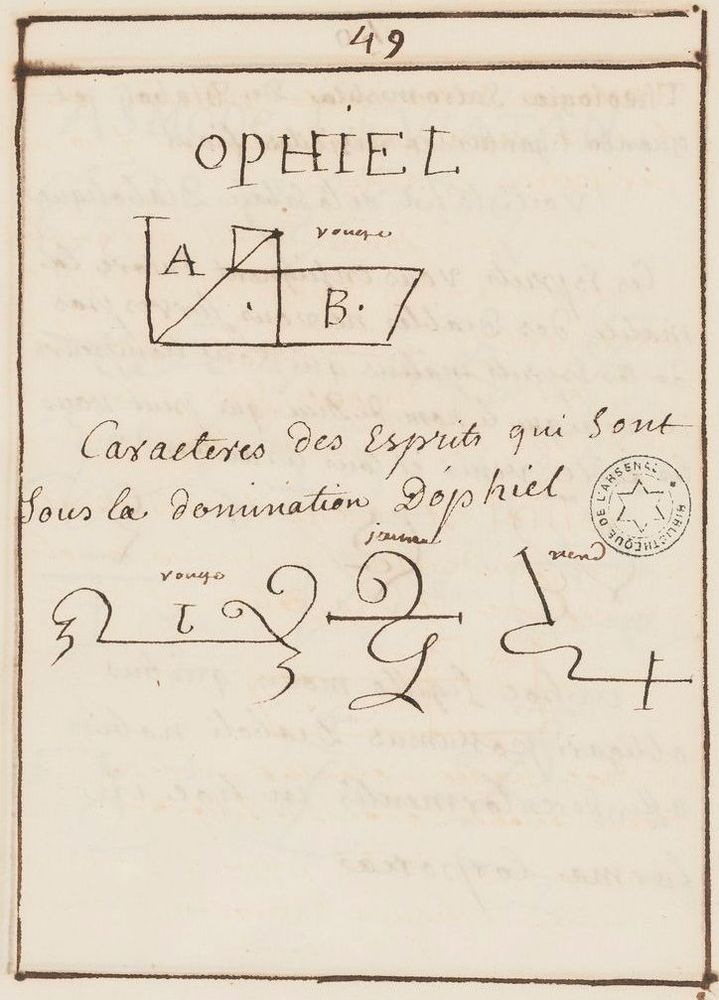 49
OPHIEL
rouge
A
B.
Caracteres des Esprits qui sont
sous la domination Dóphiel
jaune
verd
rouge
I
BIBLIOTHEQUE DE L'ARSENAL